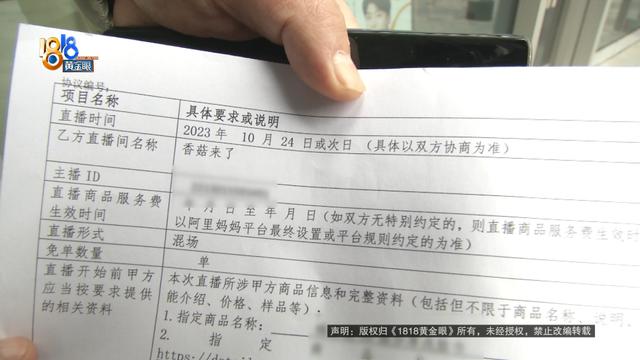 1818
黄金眼
协议编号:
项目名称
具体要求或说明
直播时间
2023年 10月24日或次日（具体以双方协商为准）
乙方直播间名称
香菇来了
主播ID
直播商品服务费
生效时间
年 月 日 至 年 月 日(如双方无特别约定的，则直播商品服务费生效时
以阿里妈妈平台最终设置或平台规则约定的为准）
直播形式
混场
免单数量
单
直播开始前甲方
应当按要求提供
的相关资料
本次直播所涉甲方商品信息和完整资料（包括但不限于商品名称、说明、
能介绍、价格、样品等）.
1.指定商品名称:
2. 指 定
声明：版权归《1818黄金眼》所有，未经授权，禁止改编转载